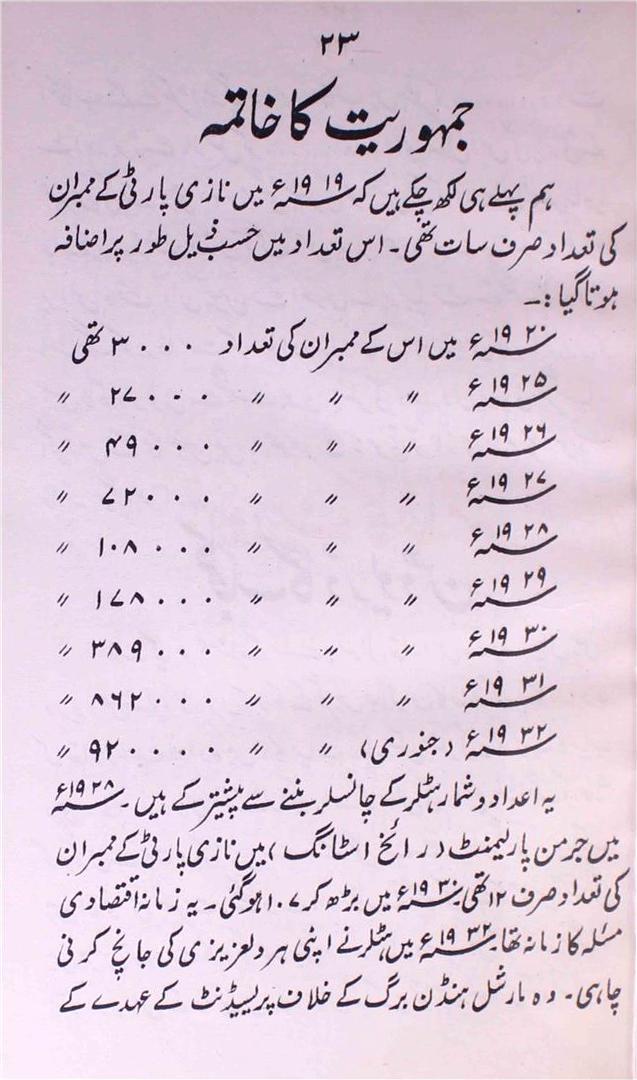 ۲۳
جمہوریت کا خاتمہ
ہم پہلے ہی لکھ چکے ہیں کہ ۱۹۱۹ء میں نازی پارٹی کے ممبران
کی تعداد صرف سات تھی۔ اس تعداد میں حسب ذیل طور پر اضافہ
ہوتا گیا:۔
۱۹۲۰ء میں اس کے ممبران کی تعداد ۳۰۰۰ تھی
۱۹۲۵ء 〃 〃 〃 ۲۷۰۰۰ 〃
۱۹۲۶ء 〃 〃 〃 ۴۹۰۰۰ 〃
۱۹۲۷ء 〃 〃 〃 ۷۲۰۰۰ 〃
۱۹۲۸ء 〃 〃 〃 ۱۰۸۰۰۰ 〃
۱۹۲۹ء 〃 〃 〃 ۱۷۸۰۰۰ 〃
۱۹۳۰ء 〃 〃 〃 ۳۸۹۰۰۰ 〃
۱۹۳۱ء 〃 〃 〃 ۸۶۲۰۰۰ 〃
۱۹۳۲ء (جنوری) 〃 〃 ۹۲۰۰۰۰ 〃
یہ اعداد و شمار ہٹلر کے چانسلر بننے سے پیشتر کے ہیں۔ ۱۹۲۸ء
میں جرمن پارلیمنٹ (رائخ اسٹانگ) میں نازی پارٹی کے ممبران
کی تعداد صرف ۱۲ تھی ۱۹۳۰ء میں بڑھ کر ۱۰۷ ہو گئی۔ یہ زمانہ اقتصادی
مسئلہ کا زمانہ تھا ۱۹۳۲ء میں ہٹلر نے اپنی ہر دلعزیزی کی جانچ کرنی
چاہی۔ وہ مارشل ہنڈن برگ کے خلاف پریسیڈنٹ کے عہدے کے